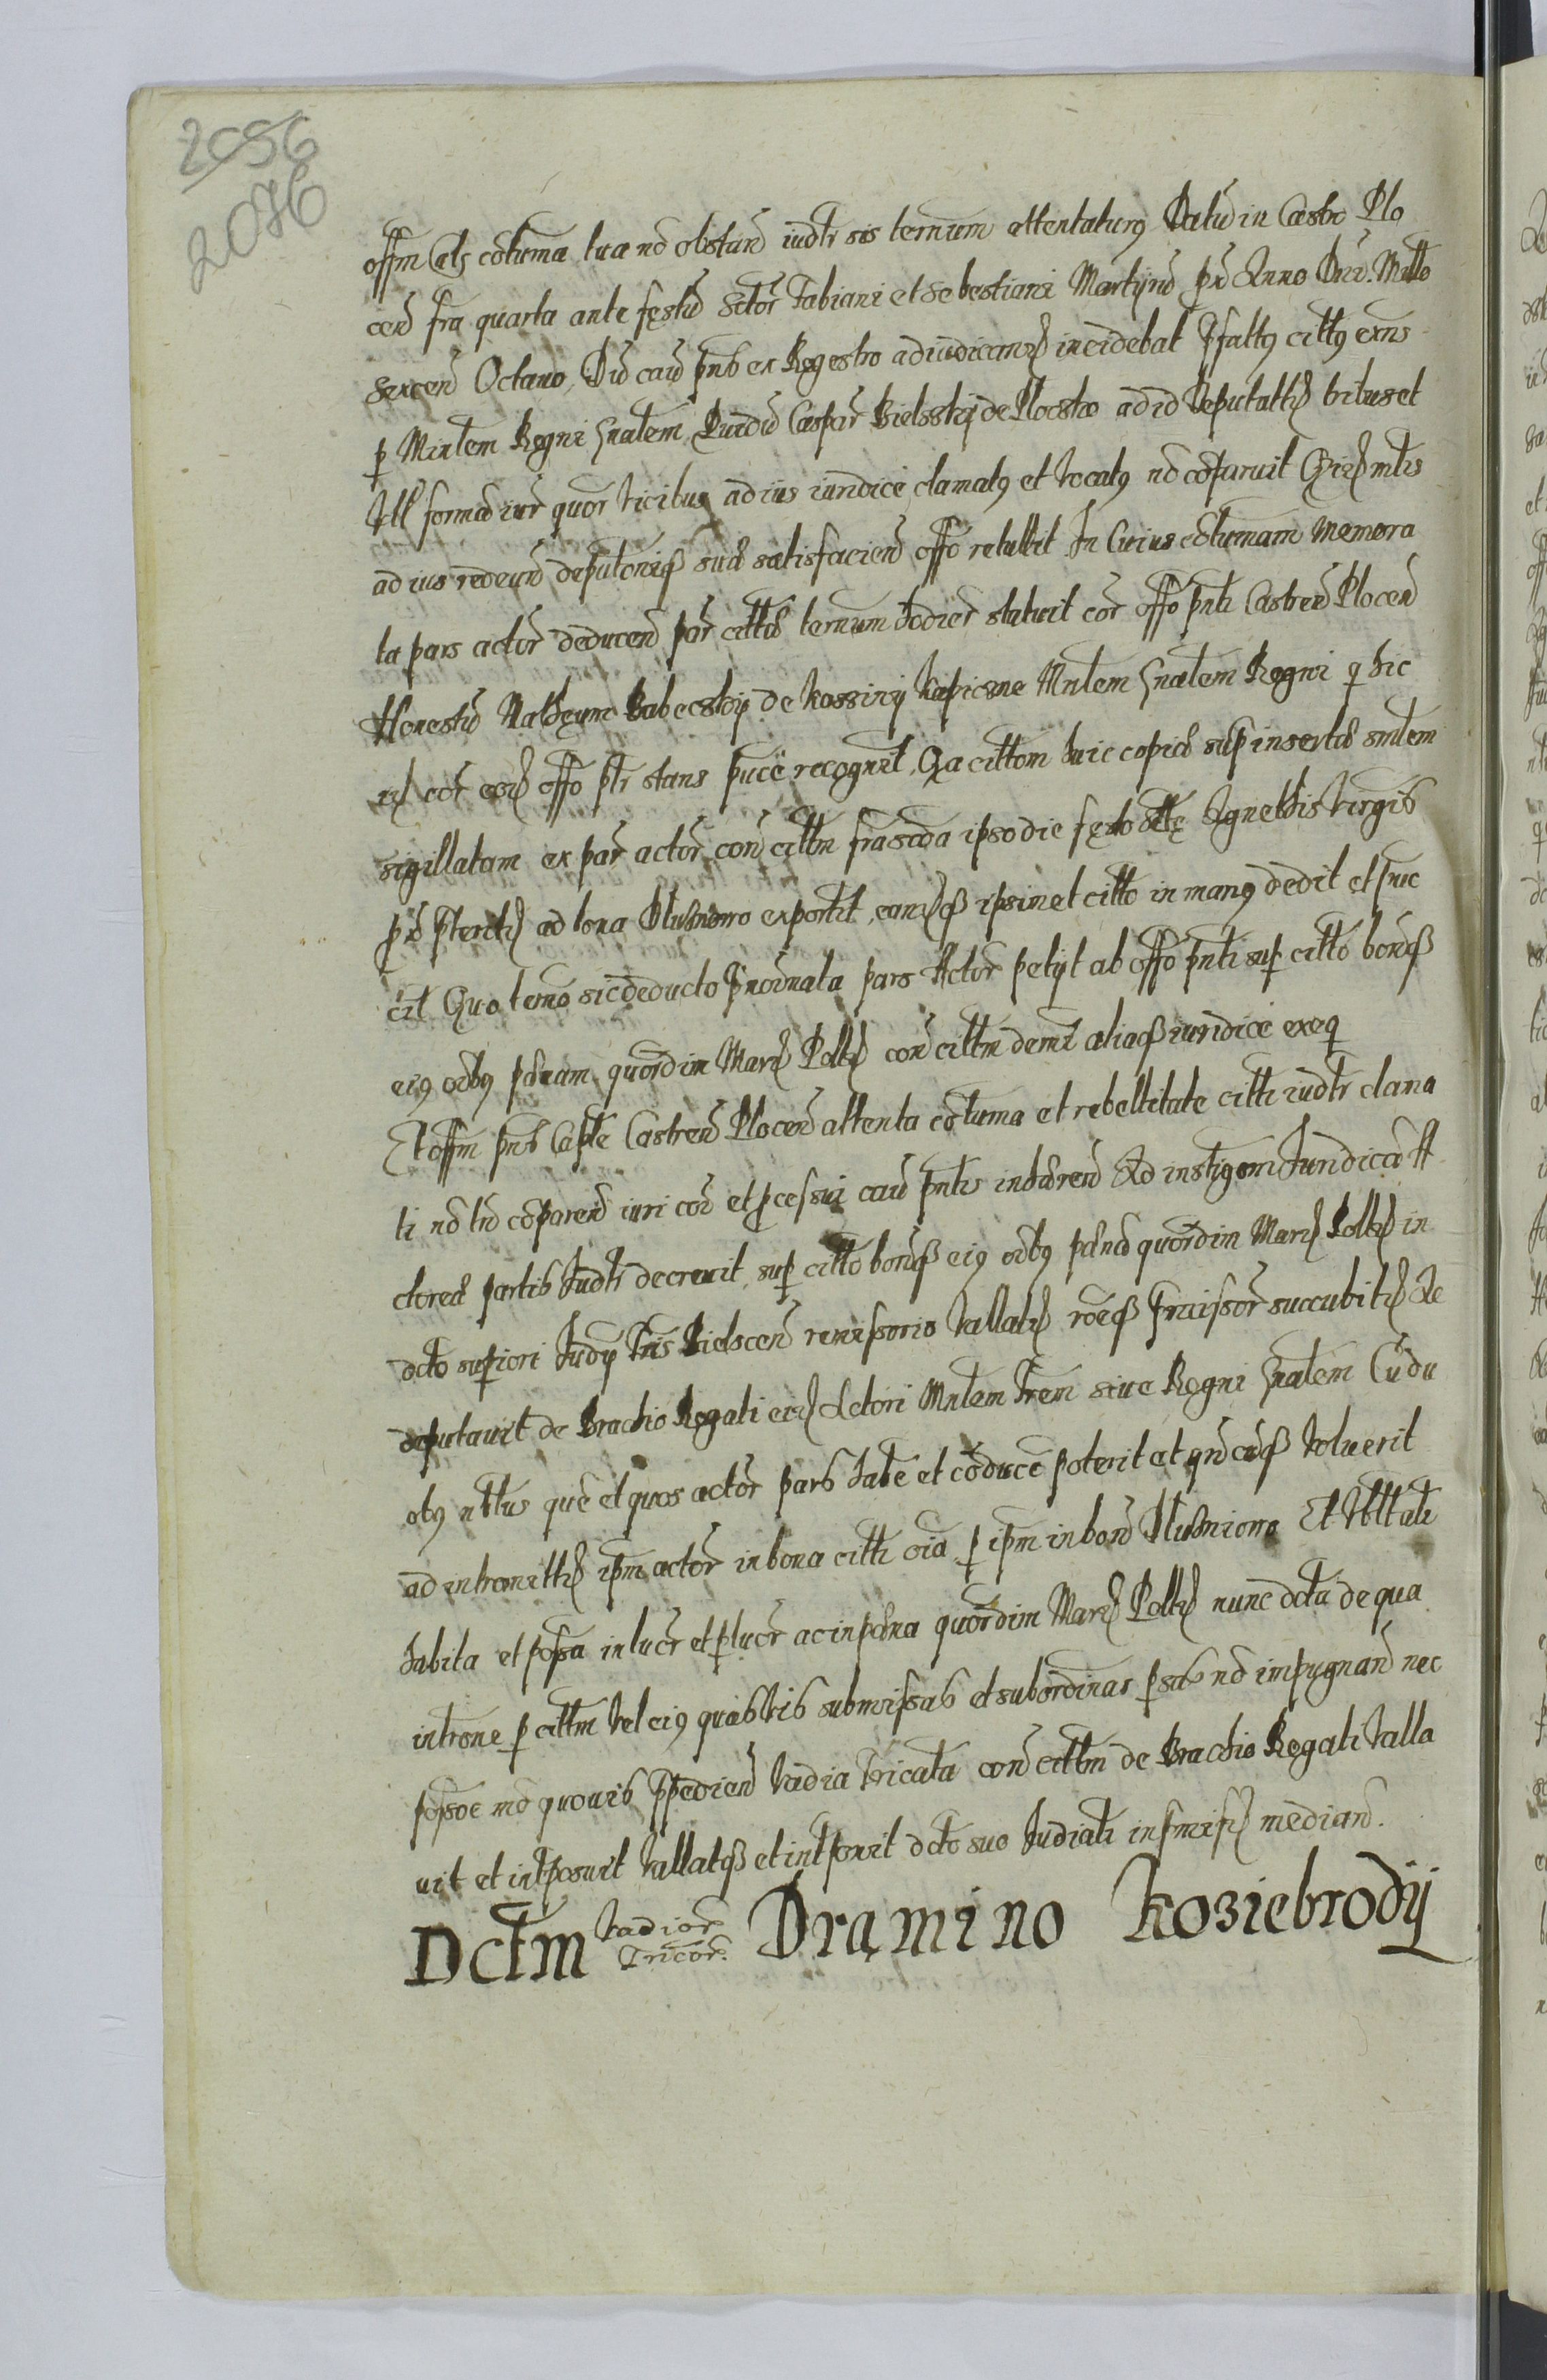 2056
2076
offm Cals cótuma tua nó obstań iudtr sis ternum attentaturus Datũ in Castro Plo
ceń fra quarta ante festũ Sctor Fabiani et Sebastiani Martyrũ pr Anno Dni. Mtto
sexceń Octauo, Dũ cau pnb ex Regestro adiudicanď incidebat Pfattus cittus exns
p Mintem Regni Gnalem, Puidũ Caspar Bielsskij de Plocsko ad id deputattď tribus et
Vtt formã iur quor vicibus ad ius iuridice clamatus et vocatus nó cõparuit mtis
ad ius redeuń deputoniq suã satisfacień offo retullit In Cuius cótumam memora
ta pars actor deducen par cittã ternum hodier statuit cor offo pnti Castreń Ploceń
Honestũ Mathęum Babeckij de Kossinij Kapicsne Mnlem Gnalem Regni q hic
cor eoď offo ptr stans puce recognit, Qa cittom huic copiã sup insertã smlem
sigillatam ex par actor con cittm frascda ipso die festo Sttę Agnethis virgib
pr pterittď ad bona exportit, eamdq ipsimet citto in manus dedit et puc
cit Quo termo sic deducto pnoinata pars Actor petijt ab offo pnti sup citto bonisq
eius oibus pdnam quordim Marď Polld con cittm demi aliaq iuridice exeq
Et offm pnb Capte Castreń Ploceń attenta cótuma et rebellitate citti iudtr clama
ti nó tñ cõpareń iuri cor et pcessui cau pntis inhereń Ad instigom Juridicã A
ctoreã partis Judtr decreuit, sup citto bonisq eius oibus pdnã quordim Marď Polld in
dcto supiori Judy Tris Bielsceń remissorio vallatď roeq pmissor succubitď Ac
deputauit de Brachio Regali eid Actori Mnlem Trem siue Regni Gnalem Cũ du
obus nttus que et quos actor pars habe et cõduce poterit et qñcuq voluerit
ad intromittď ipm actor in bona citti oia p ipm in boń Et vttali
habita et possa in lucr et plucr ac in pdna quordim Marď Polld nunc dcta de qua
introne p cittm vel eius quasvis submissas et subordinas psas nó impugnań nec
possoe mó quouis ppedień vadia tricata con cittm de Brachio Regali valla
uit et intposuit vallatq et intponit dcto suo Judiali inpmissď mediań.
Dctm vadior Tricor. Dramino Koziebrodÿ